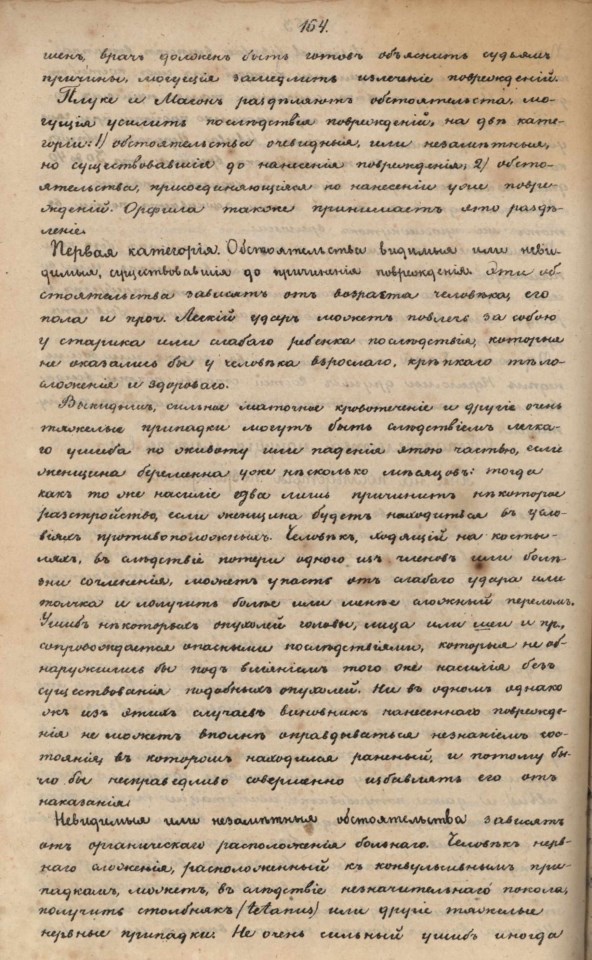 164.
шенъ, врачъ долженъ быть готовъ объяснить судьямъ
причины, могущія замедлить излеченіе поврежденій.
Плуке и Магонъ раздѣляютъ обстоятельства, мо-
гущія усилить послѣдствія поврежденій, на двѣ кате-
горіи: 1/ обстоятельства очевидныя, или незамѣтныя,
но существовавшія до нанесенія поврежденія, 2/ обсто-
ятельства, присоединяющіяся по нанесеніи уже повре-
жденій. Орфила также принимаетъ это раздѣ-
леніе.
Первая категорія. Обстоятельства видимыя или неви-
димыя, существовавшія до причиненія поврежденія. Эти об-
стоятельства зависятъ отъ возраста человѣка, его
пола и проч. Легкій ударъ можетъ повлечь за собою
у старика или слабаго ребенка послѣдствія, которыя
не оказались бы у человѣка взрослаго, крѣпкаго тѣло-
сложенія и здороваго.
Выкидышъ, сильное маточное кровотеченіе и другіе очень
тяжелые припадки могутъ быть слѣдствіемъ легка-
го ушиба по животу или паденія этою частью, если
женщина беременна уже нѣсколько мѣсяцовъ: тогда
какъ то же насиліе едва лишь причинитъ нѣкоторое
разстройство, если женщина будетъ находиться въ усло-
віяхъ противоположныхъ. Человѣкъ, ходящій на косты-
ляхъ, въ слѣдствіе потери одного изъ членовъ или болѣ-
зни сочлененія, можетъ упасть отъ слабаго удара или
толчка и получить болѣе или менѣе сложный переломъ.
Ушибъ нѣкоторыхъ опухолей головы, лица или шеи и пр.,
сопровождается опасными послѣдствіями, которыя не об-
наружились бы подъ вліяніемъ того же насилія безъ
существованія подобныхъ опухолей. Ни въ одномъ однако
жъ изъ этихъ случаевъ виновникъ нанесеннаго поврежде-
нія не можетъ вполнѣ оправдываться незнаніемъ сос-
тоянія, въ которомъ находился раненый, и потому бы-
ло бы несправедливо совершенно избавлять его отъ
наказанія.
Невидимыя или незамѣтныя обстоятельства зависятъ
отъ органическаго расположенія больнаго. Человѣкъ нерв-
наго сложенія, расположенный къ конвульсивнымъ при-
падкамъ, можетъ, въ слѣдствіе незначительнаго покола,
получить столбнякъ /tetanus/ или другіе тяжелые
нервные припадки. Не очень сильный ушибъ иногда